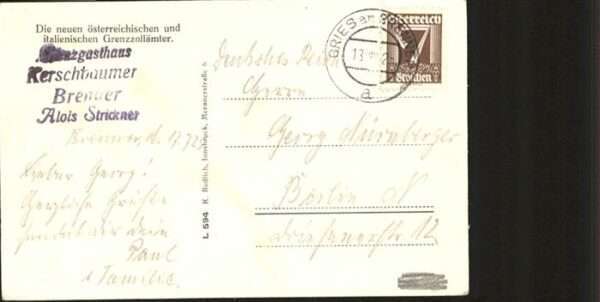 Die neuen österreichischen und
italienischen Grenzzollämter.
Grenzgasthaus
Kerschbaumer
Brenner
Alois Strickner
Lieber Georg!
Herzliche Grüße
sendet dir dein
Paul
u Familie
L 594 R. Rudlich, Innsbruck,
GRIES am
a
Österreich
7
Groschen
Deutsches Reich
Herrn
Georg Nürnberger
Berlin N
12